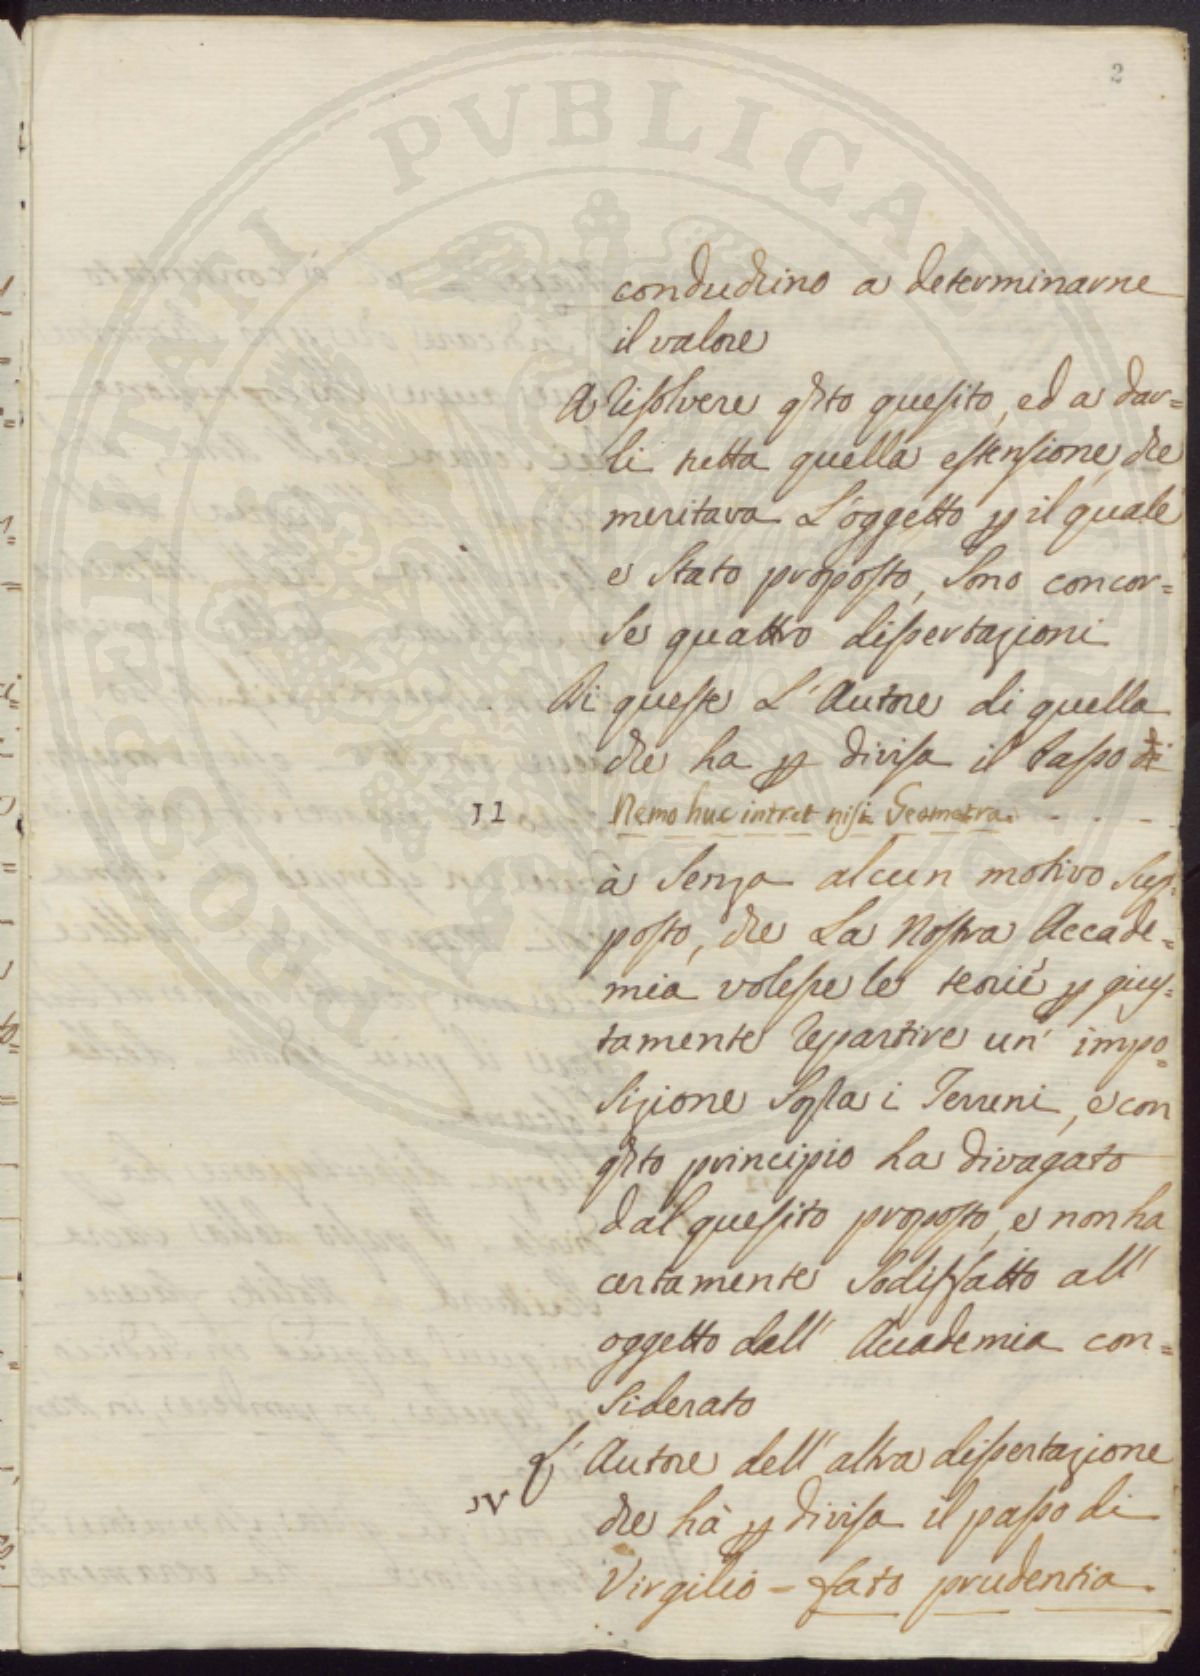 2
PROSPERITATI PVBLICAE
conduchino a determinarne
il valore
A risolvere qsto quesito, ed a dar=
li tutta quella estensione, che
meritava L'oggetto p il quale
e stato proposto, sono concor=
se quattro dissertazioni
Di queste L'Autore di quella
che ha p divisa il Passo di
II Nemo huc intret nisi Geometra.
à senza alcun motivo sup=
posto, che La Nostra Accade=
mia volesse le teorie p gius=
tamente repartire un' impo=
sizione sopra i Terreni, e con
qsto principio ha divagato
dal quesito proposto, e non ha
certamente sodisfatto all'
oggetto dall' Accademia con=
siderato
L' Autore dell' altra dissertazione
IV che hà p divisa il passo di
Virgilio = fato prudentia.